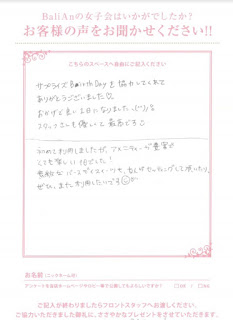 BaliAnの女子会はいかがでしたか?
お客様の声をお聞かせください!!
こちらのスペースへ自由にご記入ください
サプライズBirth Dayを協力してくれて
ありがとうございました♡
おかげで良い1日になりました
スタッフさんも優しくて最高です
初めて利用しましたが、アメニティーが豊富で
とても楽しい1日でした!
ぜひ、また利用したいです
お名前(ニックネーム可)
アンケートを当店ホームページ等への公開してもよろしいですか?
□OK / □NG
ご記入が終わりましたらフロントスタッフへお渡しください。
ご協力いただきました御礼に、ささやかなプレゼントをさせていただきます。